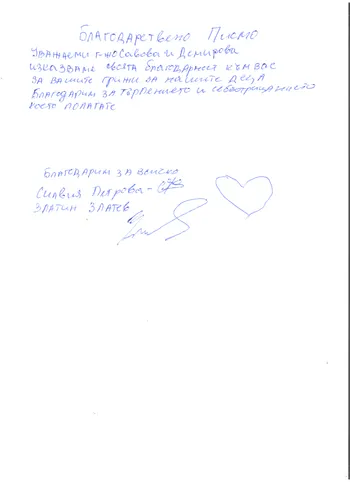 Благодарствено Писмо
Уважаеми г-жо Савова и Демирова
изказваме своята благодарност към вас
за вашите грижи за нашите деца
Благодарим за търпението и себеотрицанието
което полагате
Благодарим за всичко
Силвия Петрова -
Златин Златев